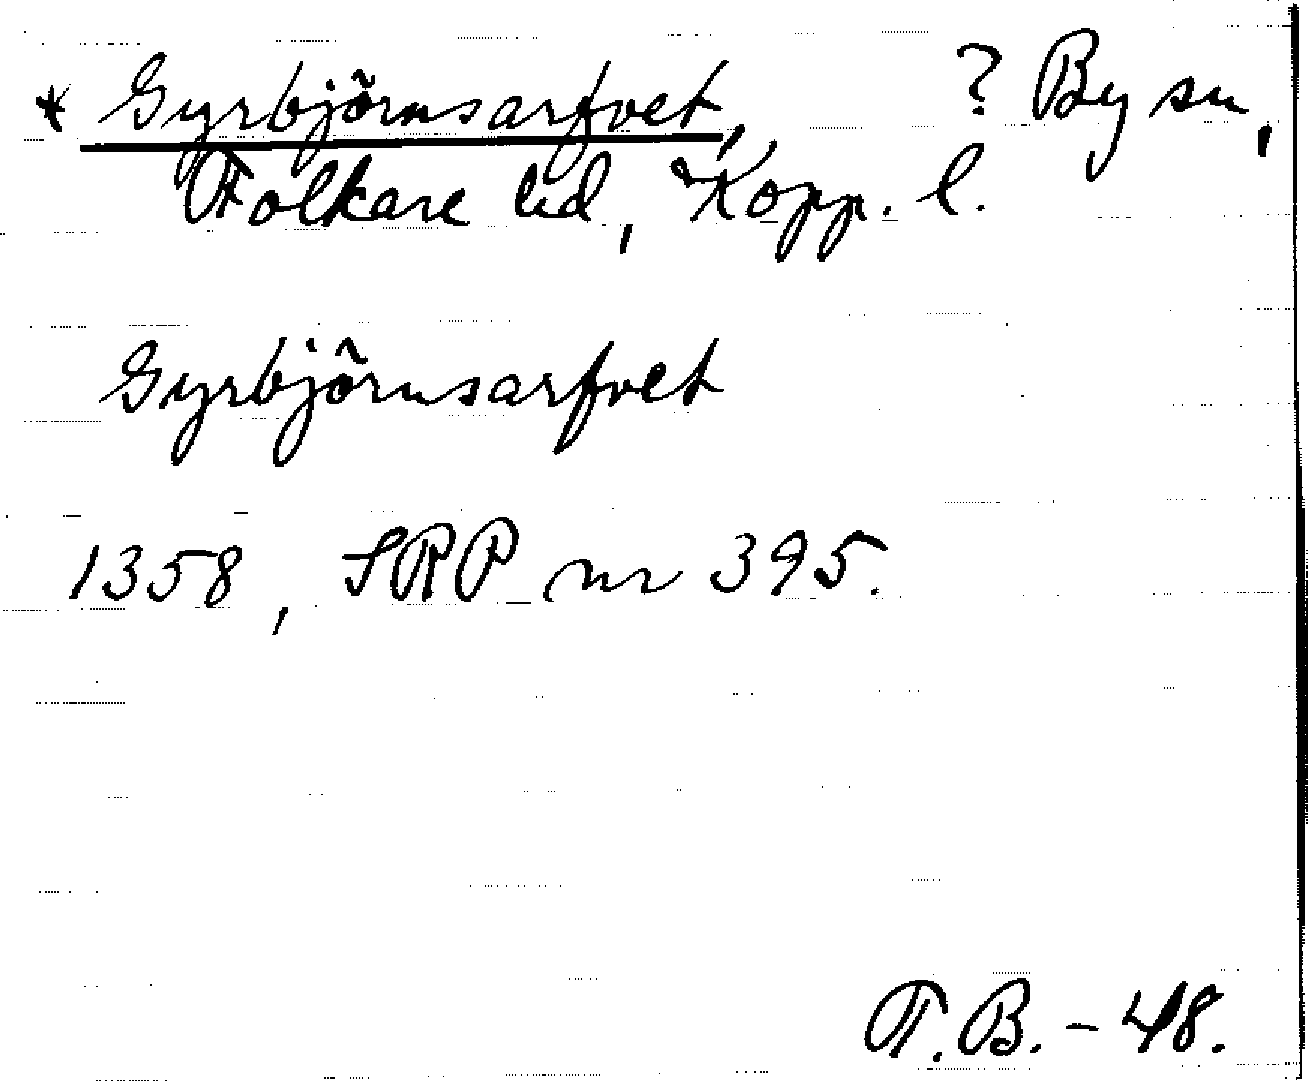 * Gyrbjörnsarfvet, ? By sn,
Folkare hd, Kopp. l.
Gyrbjörnsarfvet
1358, SRP nr 395.
T.B. - 48.